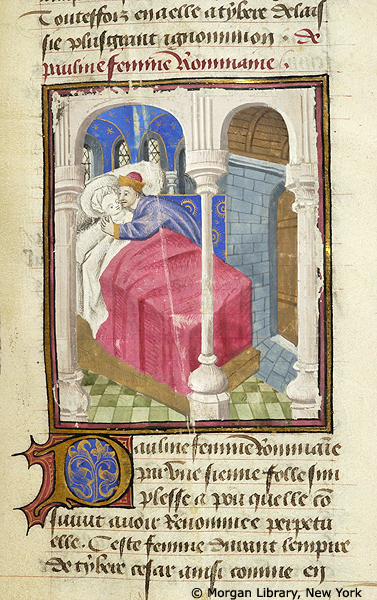 Touteffois en a elle a tybere de lais
sie plus grant ignominion . de
pauline femme Rommaine .
Pauline femme Rommaine
par une sienne folle sim
plesse a pou quelle co
suivit avoir Renommee perpetu
elle . Ceste femme durant lempire
de tybere cesar ainsi comme en
© Morgan Library, New York